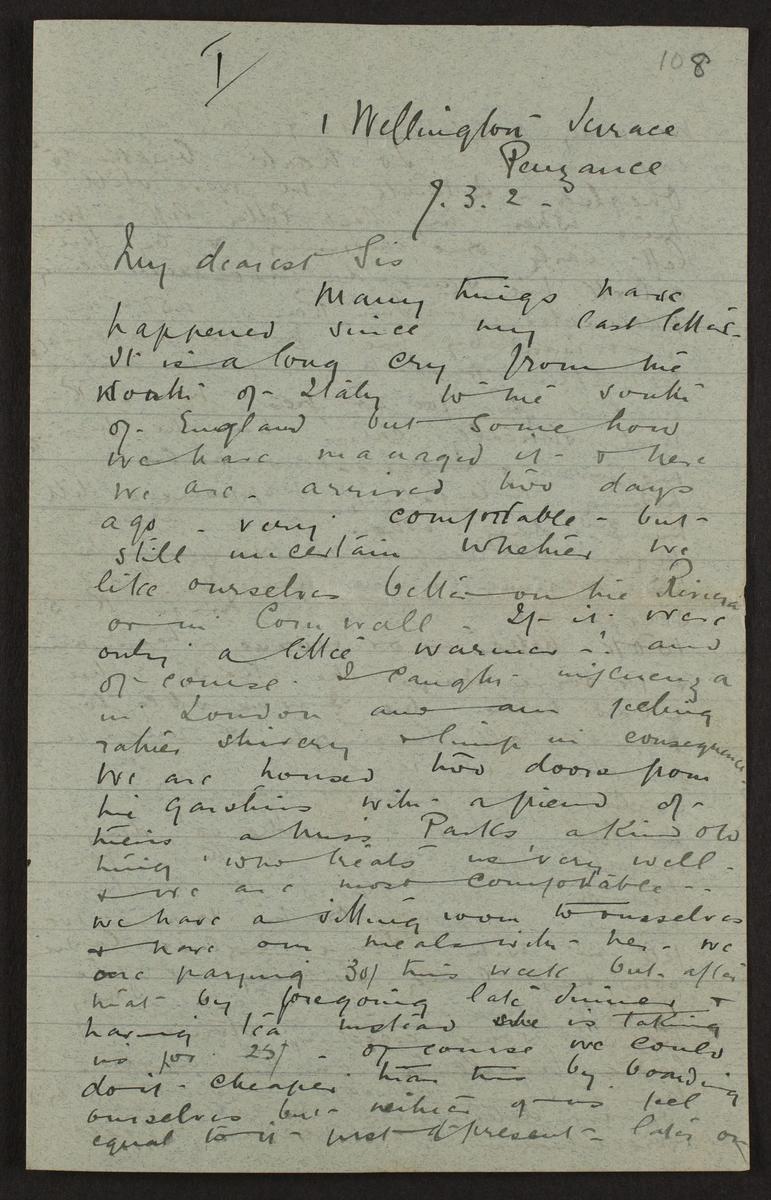 I/
108
1 Wellington Terrace
Penzance
7. 3. 2 -
My dearest Sis
Many things have
happened since my last letter -
It is a long cry from the
North of Italy to the south
of England but somehow
we have managed it - & here
we are - arrived two days
ago - very comfortable - but -
still uncertain whether we
like ourselves better on the Riviera
or in Cornwall - If it were
only a little warmer -! and
of course I caught influenza
in London and am feeling
rather shivery & limp in consequence.
We are housed two doors from
the Garstins with a friend of
theirs a Miss Parks a kind old
thing who treats us very well -
& we are most comfortable --
we have a sitting room to ourselves
& have our meals with her - we
are paying 30/ this week but after
that by foregoing late dinner &
having tea instead she is taking
us for 25/ - of course we could
do it cheaper than this by boarding
ourselves but neither of us feel
equal to it just at present - later on